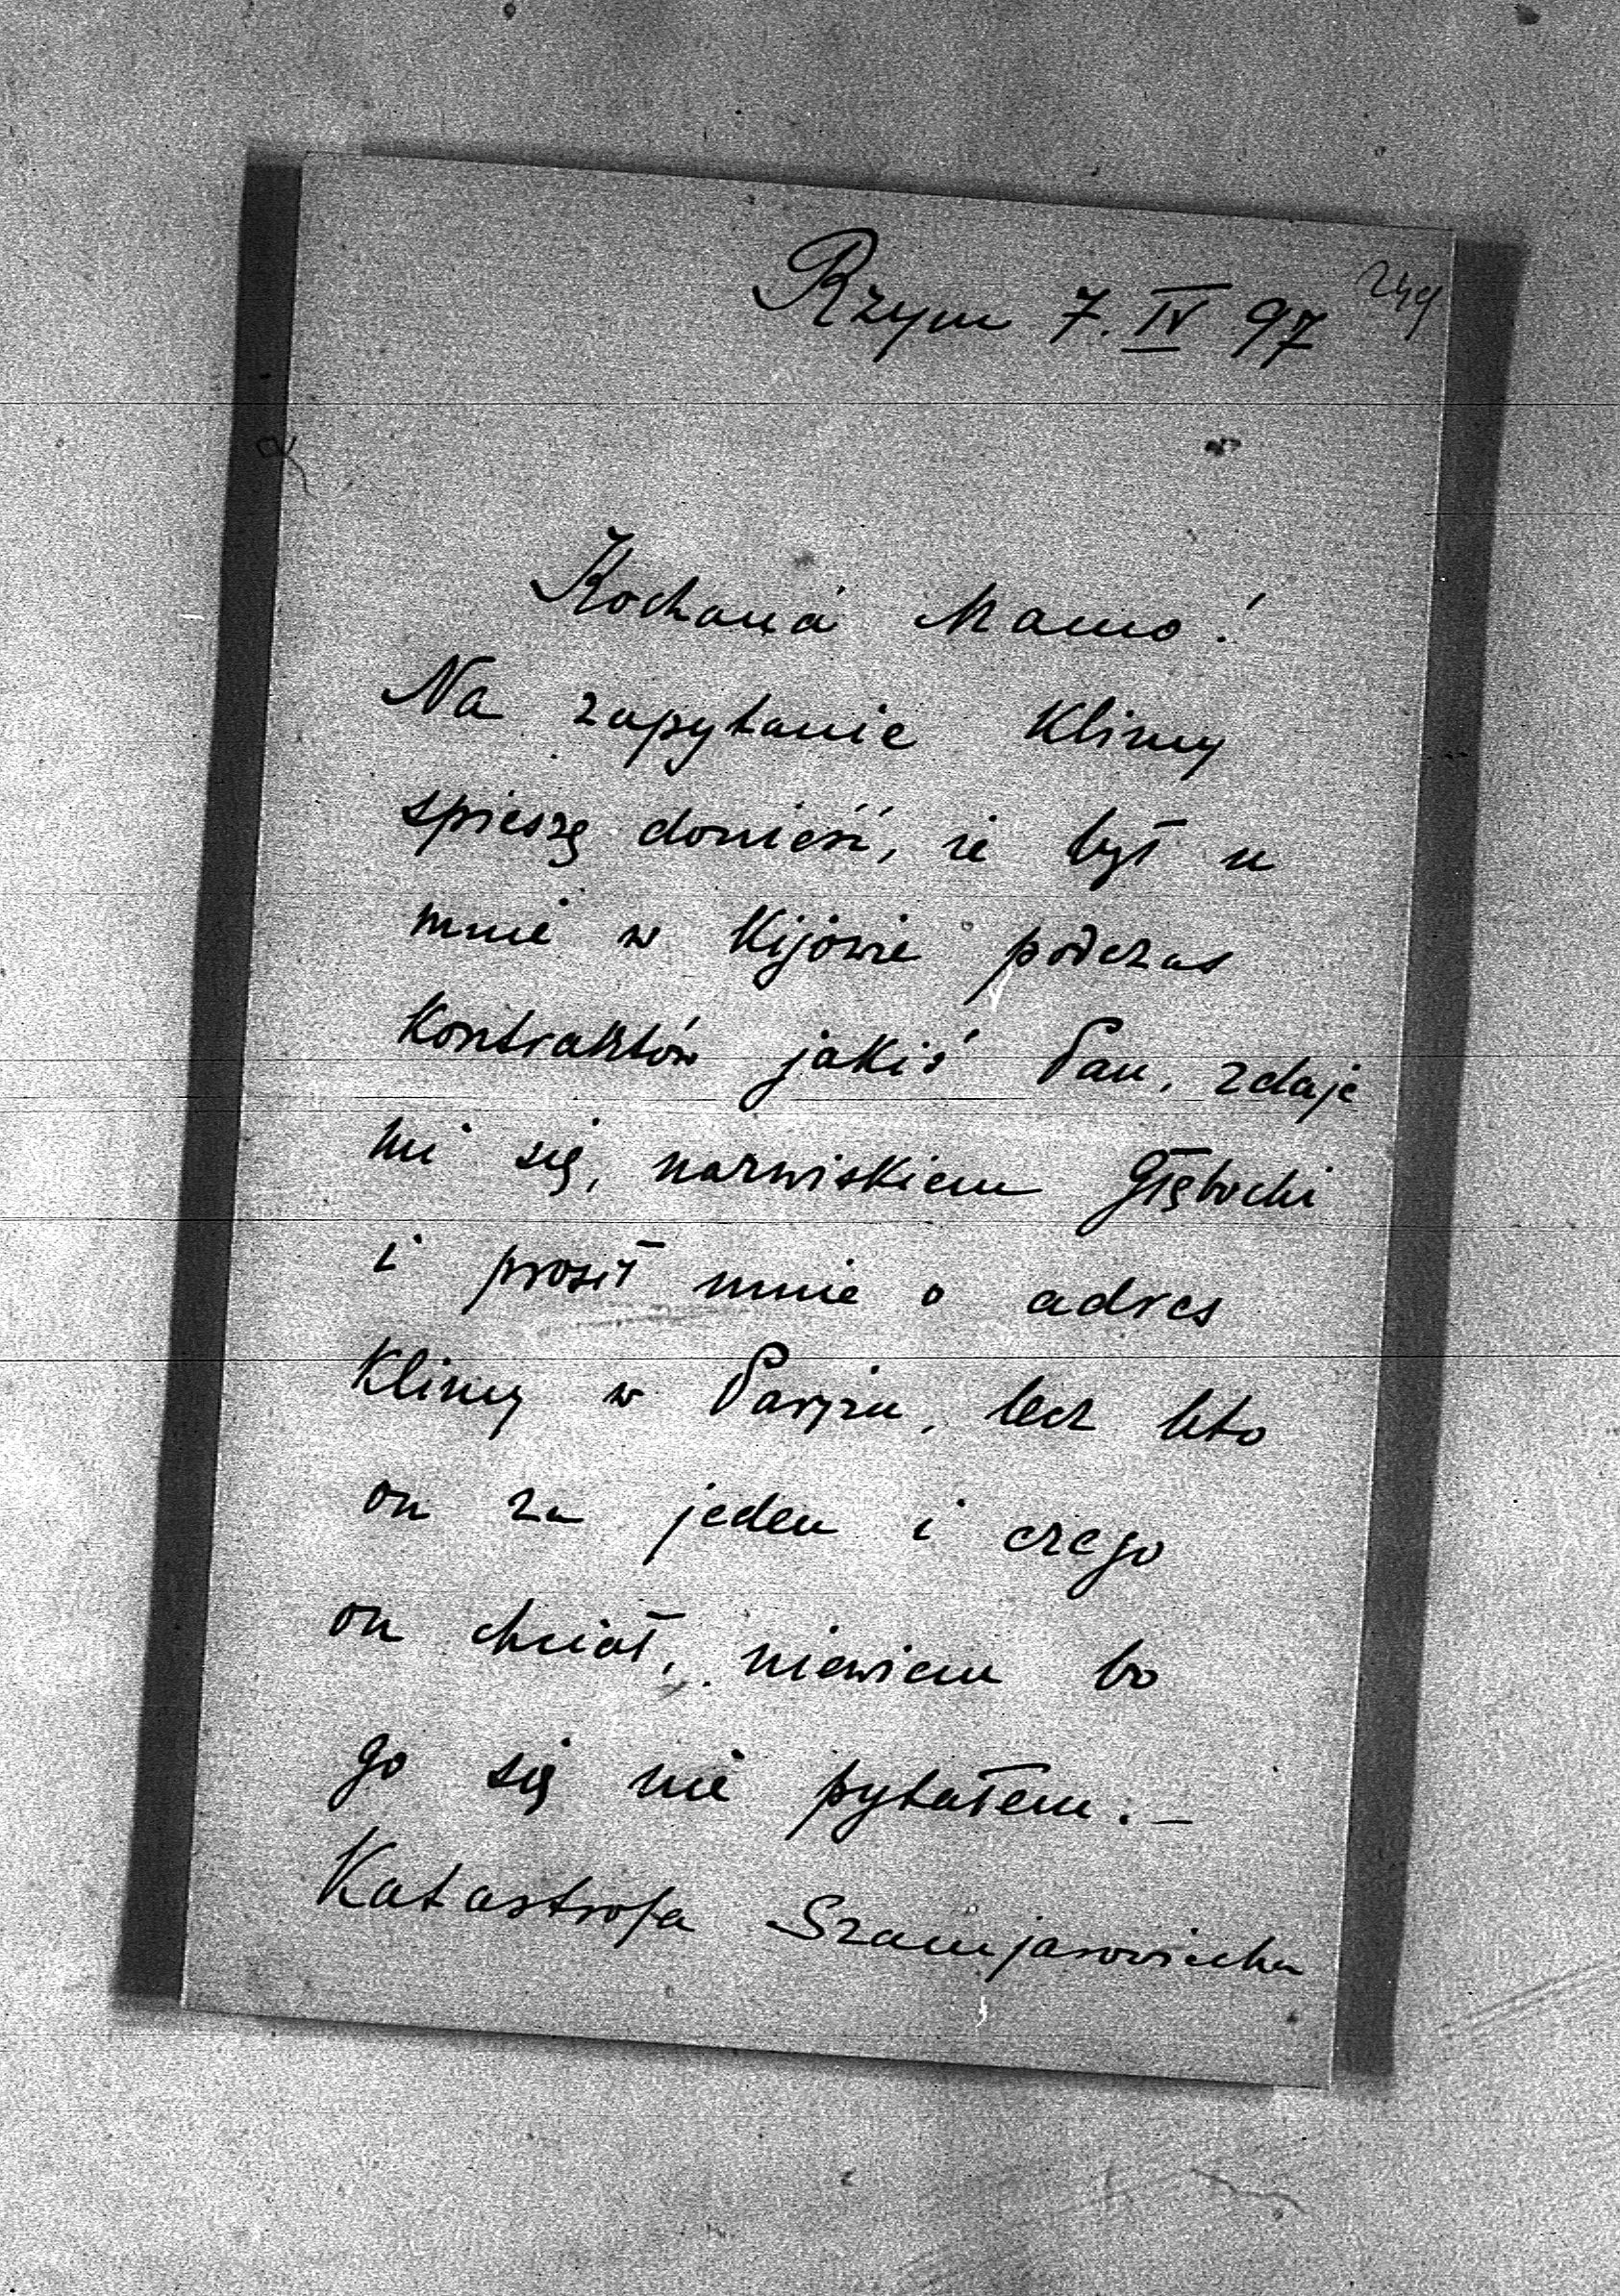 Rzym 7. IV 97
249
Kochana Mamo!
Na zapytanie Klimy
spieszę donieść, że był u
mnie w Kijowie podczas
Kontraktów jakiś Pan, zdaje
mi się, nazwiskiem Głębocki
i prosił mnie o adres
Klimy w Paryżu, lecz kto
on za jeden i czego
on chciał, niewiem bo
go się nie pytałem. —
Katastrofa